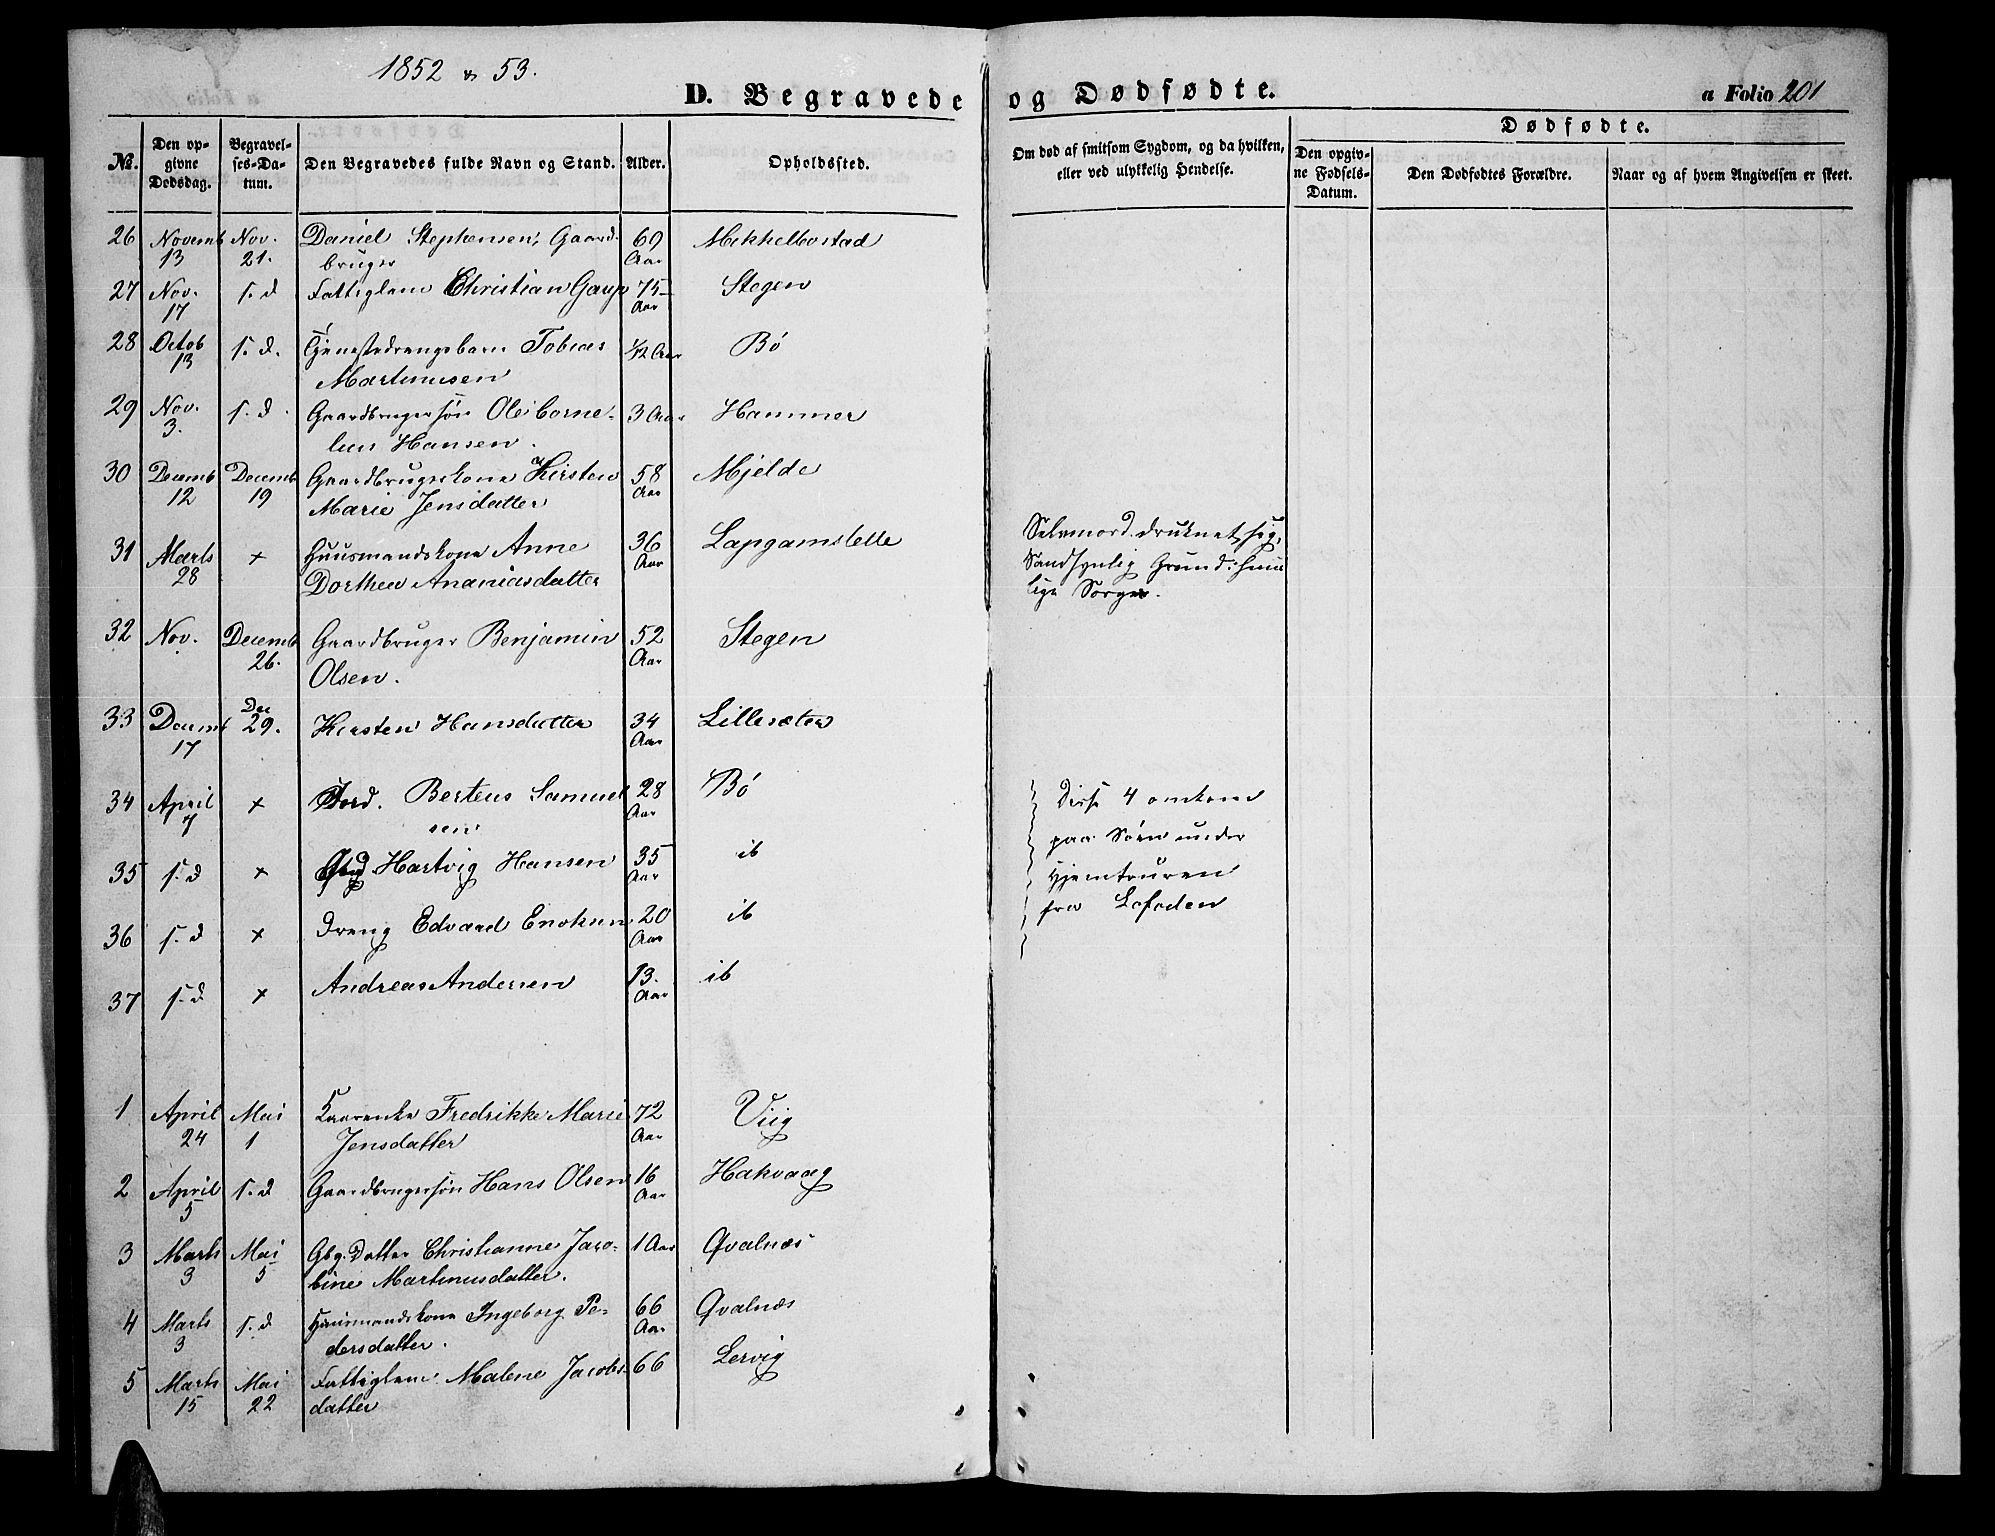 1852 & 53.
D. Begravede og Dødfødte.
a Folio 201
Dødfødte.
№.
Den opgivne Dødsdag.
Begravelses-Datum.
Den Begravedes fulde Navn og Stand.
Alder.
Opholdssted.
Om død af smitsom Sygdom, og da hvilken, eller ved ulykkelig Hendelse.
Den opgivne Fødsels-Datum.
Den Dødfødtes Forældre.
Naar og af hvem Angivelsen er skeet.
26 Novemb Nov. Daniel Stephensen, Gaard- 69 Mekkelbostad
13 21. bruger Aar
27 Nov. s. d Fattiglem Christian Gaup 75 Stegen
17 Aar
28 Octob s. d. Tjenestedrengsbarn Tobias 1/12 Aar Bö
13 Martinusen
29 Nov. s. d. Gaardbrugersön Ole Corne- 3 Aar Hammer
3. lius Hansen.
30 Decemb Decemb Gaardbrugerkone Kirsten 58 Mjelde
12 19 Marie Jensdatter Aar
31 Marts + Huusmandskone Anne 36 Lapgamslette Selvmord. druknet sig,
28 Dorthea Ananiasdatter Aar Sandsynlig Grund: huus
lige Sorger.
32 Nov. Decemb Gaardbruger Benjamin 52 Stegen
26. Olsen. Aar
33 Decemb Dec 29. Kirsten Hansdatter 34 Lillesæter
17 Aar
34 April + Berteus Samuel 28 Bö Disse 4 omkom
7 sen Aar paa Söen under
35 s. d + Hartvig Hansen 35 ib Hjemtouren
Aar
36 s. d + Dreng Edvard Enoksen 20 ib fra Lofoden
Aar
37 s. d + Andreas Andersen 13. ib
Aar
1 April Mai Fredrikke Marie 72 Viig
24 1 Jensdatter Aar
2 April s. d Gaardbrugersön Hans Olsen 16 Hakvaag
5 Aar
3 Marts Mai Gbg. Datter Christianne Jaco- 1 Aar Qvalnæs
3 5 bine Martinusdatter.
4 Marts s. d Huusmandskone Ingeborg Pe- 66 Qvalnæs
3 dersdatter. Aar
5 Marts Mai Fattiglem Malene Jacobs- 66 Lervig
15 22 datter